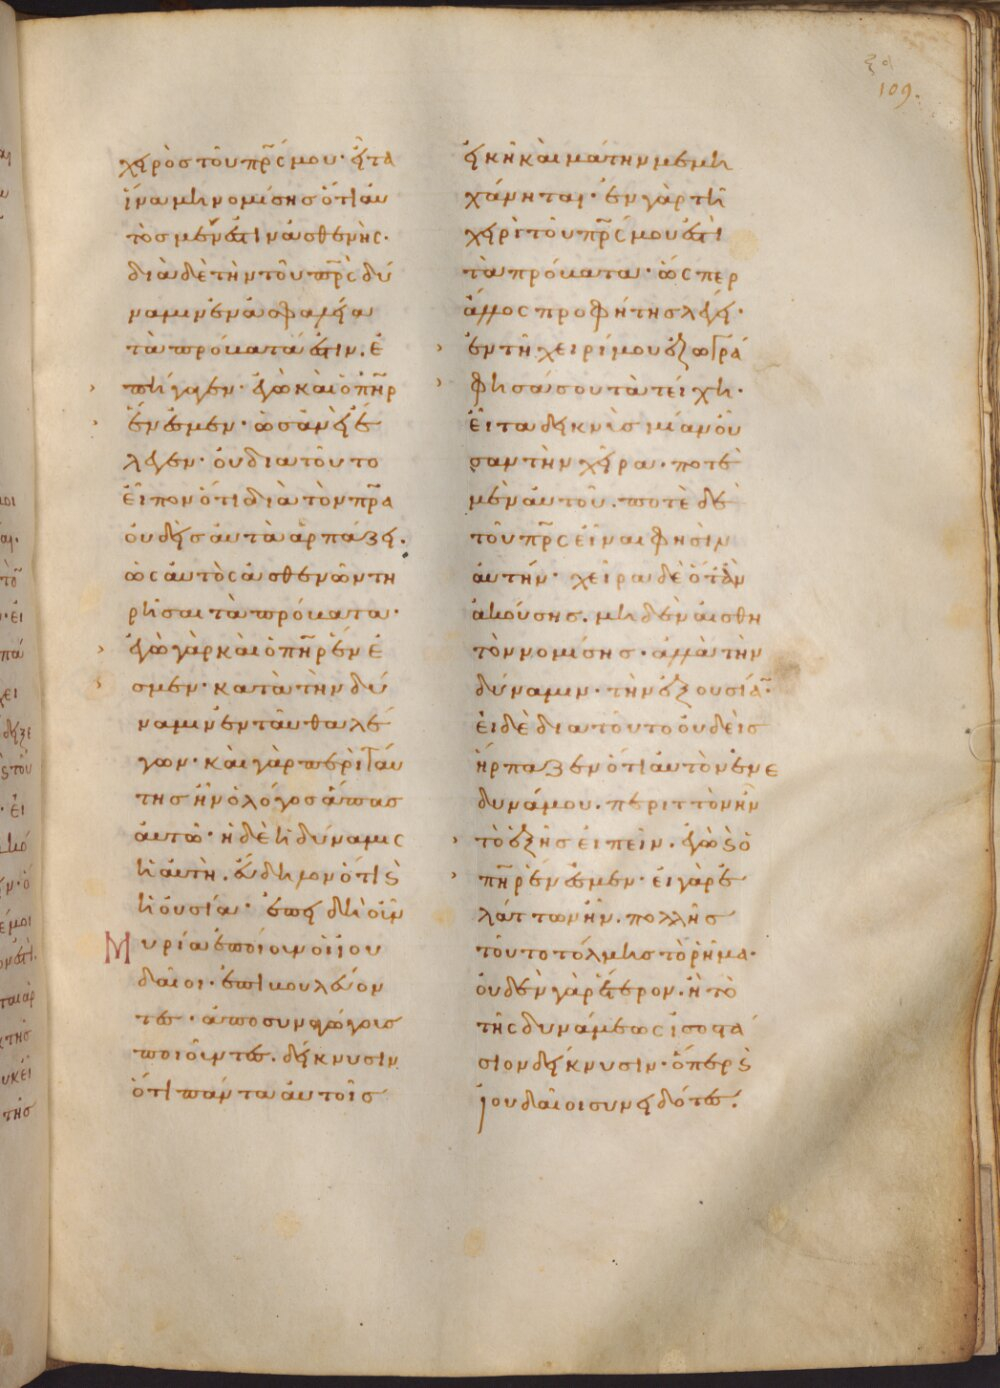 ξα
109.
χειρὸς τοῦ πρς μου· εἶτα
ἵνα μὴ νομίσης ὅτι αὐ
τὸς μέν ἐστιν ἀσθενής·
διὰ δὲ τὴν τοῦ πρς δύ
ναμιν ἐν ἀσφαλεία
τὰ πρόβατά ἐστιν. ἐ
πήγαγεν· ἐγὼ καὶ ὁ πηρ
ἕν ἐσμεν· ὡσανεὶ ἔ
λεγεν· οὐ δια τοῦτο
εἶπον ὅτι διὰ τὸν πρα
οὐδεὶς αὐτὰ ἁρπάζει.
ὡς αὐτὸς ἀσθενῶν τη
ρῆσαι τὰ πρόβατα·
ἐγὼ γὰρ καὶ ὁ πηρ ἕν ἐ
σμεν· κατὰ τὴν δύ
ναμιν ἐνταῦθα λέ
γων· καὶ γὰρ περὶ ταύ
της ἦν ὁ λόγος ἅπας
αὐτῶ· ἡ δὲ ἡ δύναμις
ἡ αὐτὴ. εὔδηλον ὅτι καὶ
ἡ οὐσία· ἐπειδὴ οὖν
Μυρία ἐποίουν οἱ ἰου
δαῖοι· ἐπιβουλεύον
τες· ἀποσυναγώγους
ποιοῦντες. δείκνυσιν
ὅτι πάντα αὐτοῖς
εἰκῆ καὶ μάτην μεμη
χάνηται· ἐν γὰρ τῆ
χειρὶ τοῦ πρς μου ἐστὶ
τὰ πρόβατα· ὥσπερ
ἄλλος προφήτης λέγει·
ἐν τῆ χειρί μου ἐζωγρά
φησά σου τὰ τείχη·
εἶτα δεικνὺς μίαν οὖ
σαν τὴν χεῖρα. ποτὲ
μὲν αὐτοῦ. ποτὲ δὲ
τοῦ πρς εἶναι φησὶν
αὐτήν· χεῖρα δὲ ὅταν
ἀκούσης. μηδὲν αἰσθη
τὸν νομίσης. ἀλλὰ τὴν
δύναμιν· τὴν ἐξουσίαν·
εἰ δὲ δια τοῦτο οὐδεὶς
ἥρπαζεν ὅτι αὐτὸν ἐνε
δυνάμου. περιττὸν ἦν
τὸ ἐξῆς εἰπεῖν. ἐγὼ καὶ ὁ
πηρ ἕν ἐσμεν· εἰ γὰρ ἐ
λάττων ἦν. πολλῆς
τοῦτο τόλμης τὸ ῥῆμα·
οὐδὲν γὰρ ἕτερον. ἢ τὸ
τῆς δυνάμεως ἰσοστά
σιον δείκνυσιν· ὅπερ καὶ
ἰουδαῖοι συνειδότες.